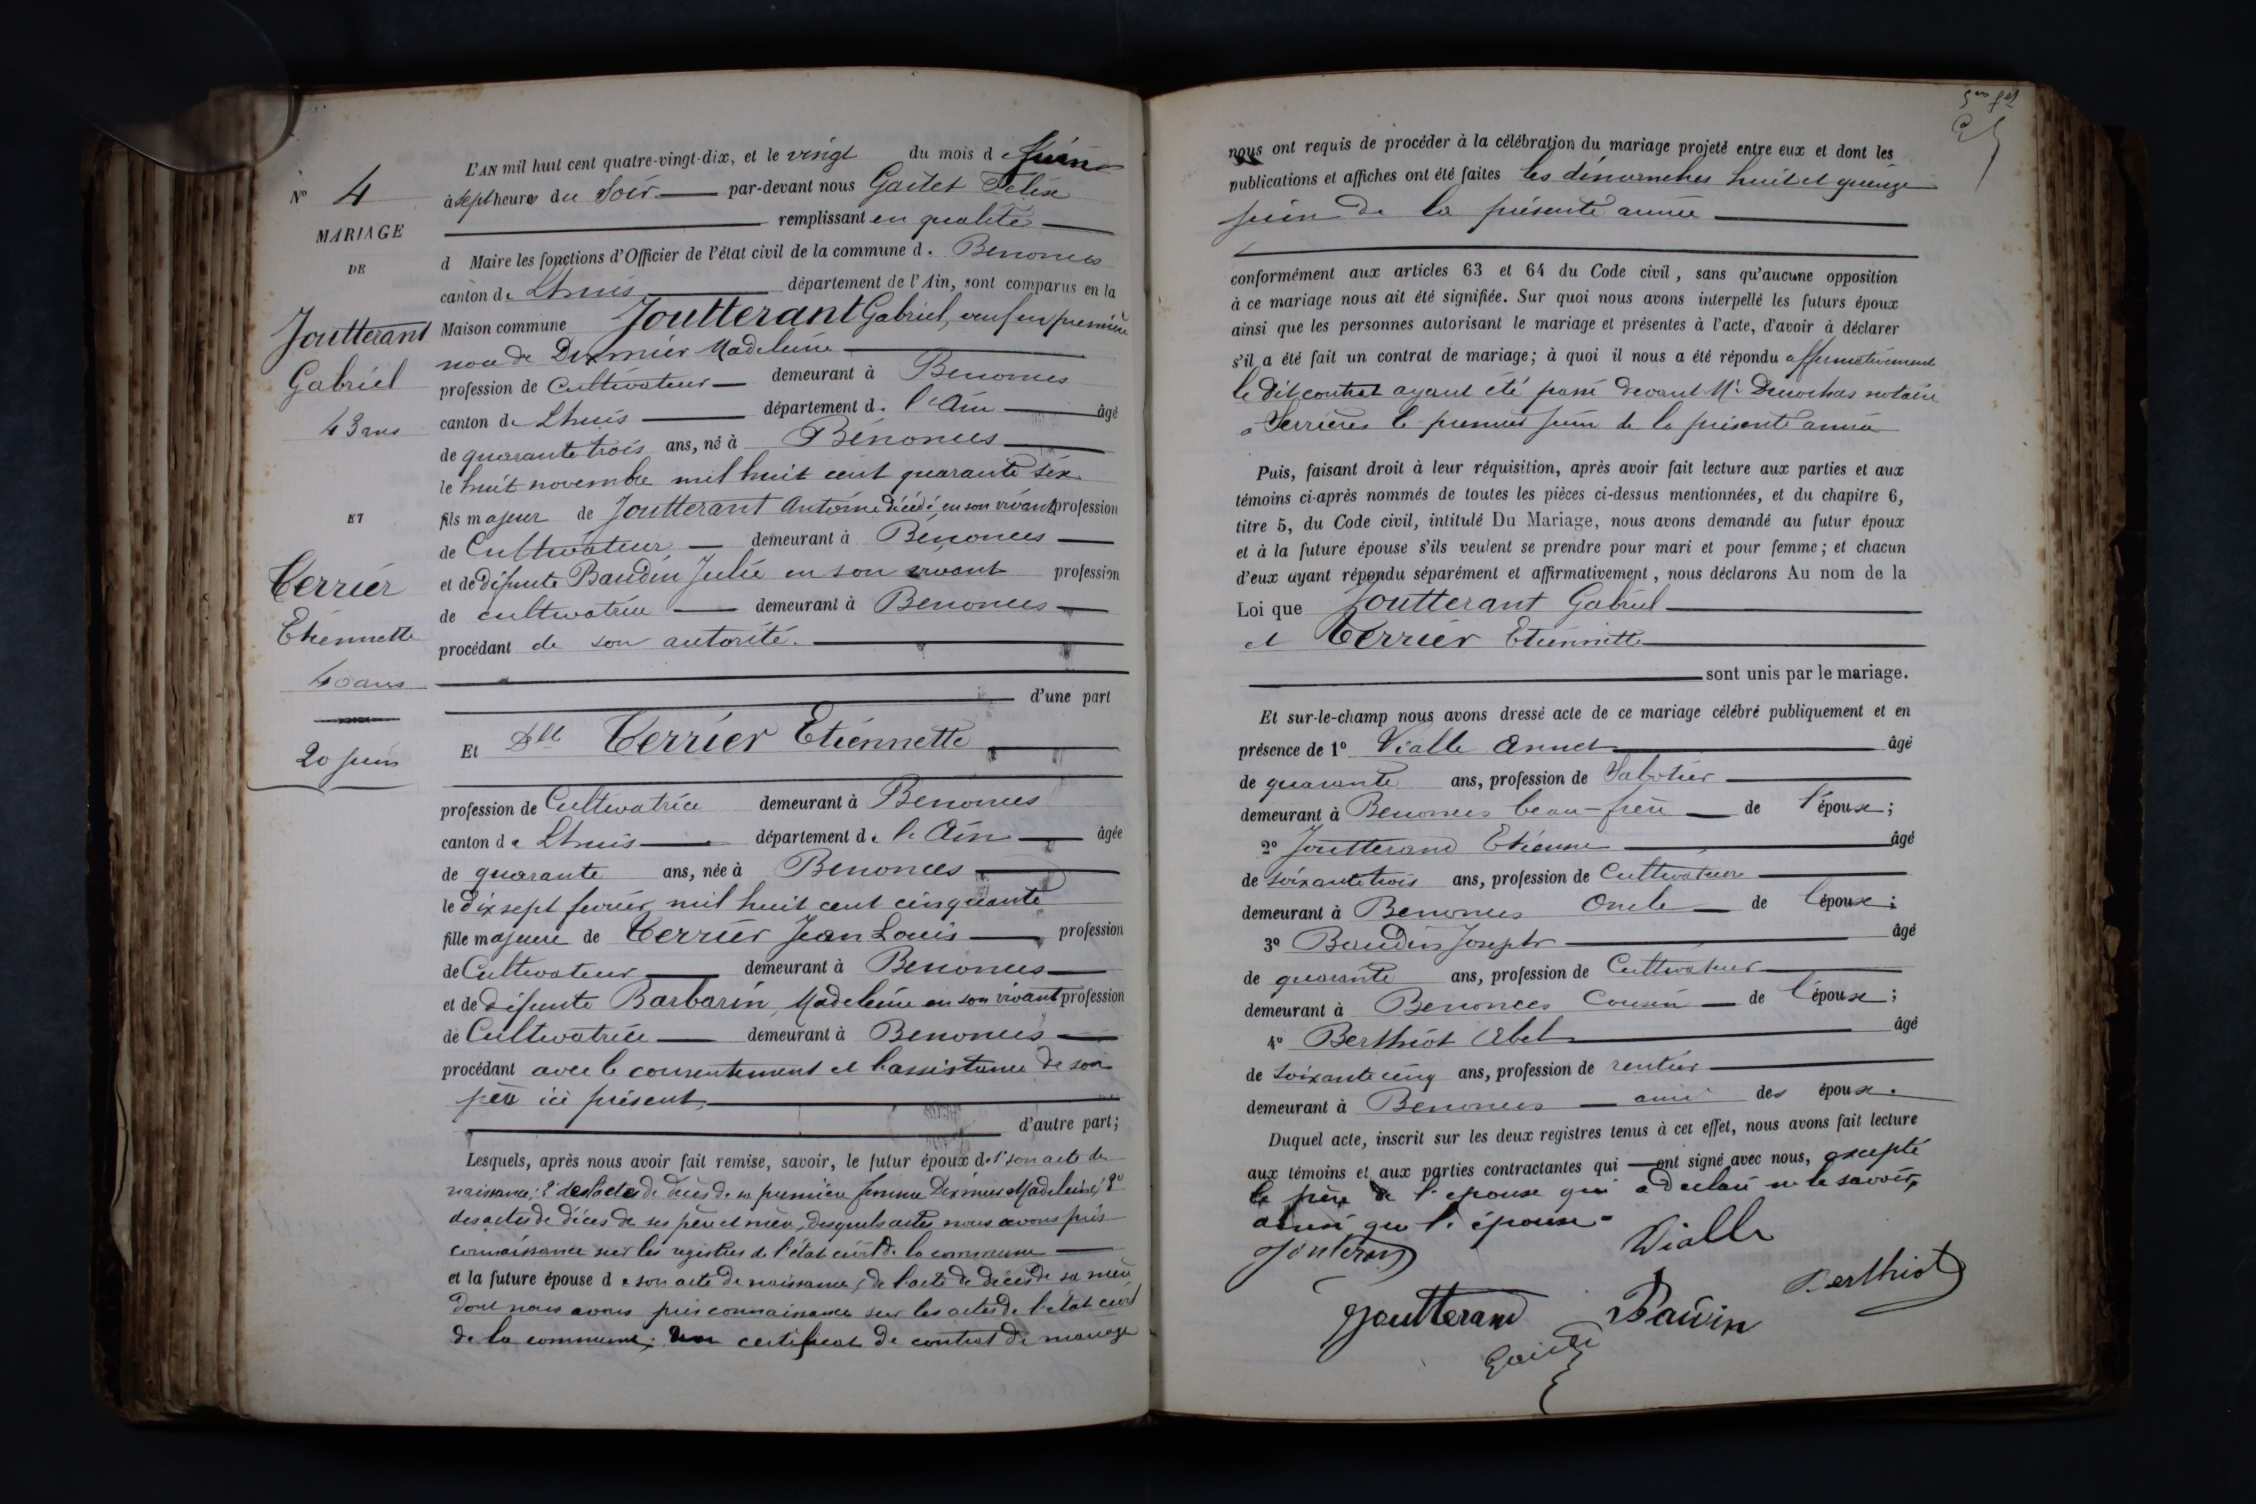 N° 4
MARIAGE
DE
Joutterant
Gabriel
43 ans
ET
Terrier
Etiennette
40 ans
20 juin
L'AN mil huit cent quatre-vingt-dix, et le vingt du mois de Juin
à sept heures du Soir par-devant nous Gaillet Félix
remplissant en qualité
d Maire les fonctions d'Officier de l'état civil de la commune d. Benonces
canton de Lhuis département de l'Ain, sont comparus en la
Maison commune Joutterant Gabriel, veuf en première
noce de Dixmier Madeleine
profession de Cultivateur demeurant à Benonces
canton de Lhuis département d. l'Ain âgé
de quarante trois ans, né à Bénonces
le huit novembre mil huit cent quarante six
fils majeur de Joutterant Antoine décédé, en son vivant profession
de Cultivateur demeurant à Bénonces
et de défunte Baudin Julie en son vivant profession
de cultivatrice demeurant à Benonces
procédant de son autorité.
d'une part
Et Dlle Terrier Etiennette
profession de Cultivatrice demeurant à Benonces
canton de Lhuis département de l'Ain âgée
de quarante ans, née à Benonces
le dix sept fevrier mil huit cent cinquante
fille majeure de Terrier Jean Louis profession
de Cultivateur demeurant à Benonces
et de défunte Barbarin, Madeleine en son vivant profession
de Cultivatrice demeurant à Benonces
procédant avec le consentement et l'assistance de son
père ici présent,
d'autre part;
Lesquels, après nous avoir fait remise, savoir, le futur époux de 1° son acte de
naissance; 2° de l'acte de décès de sa première femme Dixmier Madeleine; 3°
des actes de décès de ses père et mère, desquels actes nous avons pris
connaissance sur les registres de l'état civil de la commune
et la future épouse de son acte de naissance, de l'acte de décès de sa mère,
dont nous avons pris connaissance sur les actes de l'état civil
de la commune; un certificat de contrat de mariage
nous ont requis de procéder à la célébration du mariage projeté entre eux et dont les
publications et affiches ont été faites les dimanches huit et quinze
juin de la présente année
conformément aux articles 63 et 64 du Code civil, sans qu'aucune opposition
à ce mariage nous ait été signifiée. Sur quoi nous avons interpellé les futurs époux
ainsi que les personnes autorisant le mariage et présentes à l'acte, d'avoir à déclarer
s'il a été fait un contrat de mariage; à quoi il nous a été répondu affirmativement
le dit contrat ayant été passé devant Me notaire
à Serrières le premier juin de la présente année
Puis, faisant droit à leur réquisition, après avoir fait lecture aux parties et aux
témoins ci-après nommés de toutes les pièces ci-dessus mentionnées, et du chapitre 6,
titre 5, du Code civil, intitulé Du Mariage, nous avons demandé au futur époux
et à la future épouse s'ils veulent se prendre pour mari et pour femme; et chacun
d'eux ayant répondu séparément et affirmativement, nous déclarons Au nom de la
Loi que Joutterant Gabriel
et Terrier Etiennette
sont unis par le mariage.
Et sur-le-champ nous avons dressé acte de ce mariage célébré publiquement et en
présence de 1° Vialle Annet âgé
de quarante ans, profession de Sabotier
demeurant à Benonces beau-frère de l'épouse;
2° Joutterand Etienne âgé
de soixante trois ans, profession de Cultivateur
demeurant à Benonces Oncle de l'épouse;
3° Baudin Joseph âgé
de quarante ans, profession de Cultivateur
demeurant à Benonces Cousin de l'épouse;
4° Berthiot Abel âgé
de soixante cinq ans, profession de rentier
demeurant à Benonces ami des époux.
Duquel acte, inscrit sur les deux registres tenus à cet effet, nous avons fait lecture
aux témoins et aux parties contractantes qui ont signé avec nous, excepté
le père de l'épouse qui a déclaré ne le savoir,
ainsi que l'épouse
Vialle
Berthiot
Joutterand